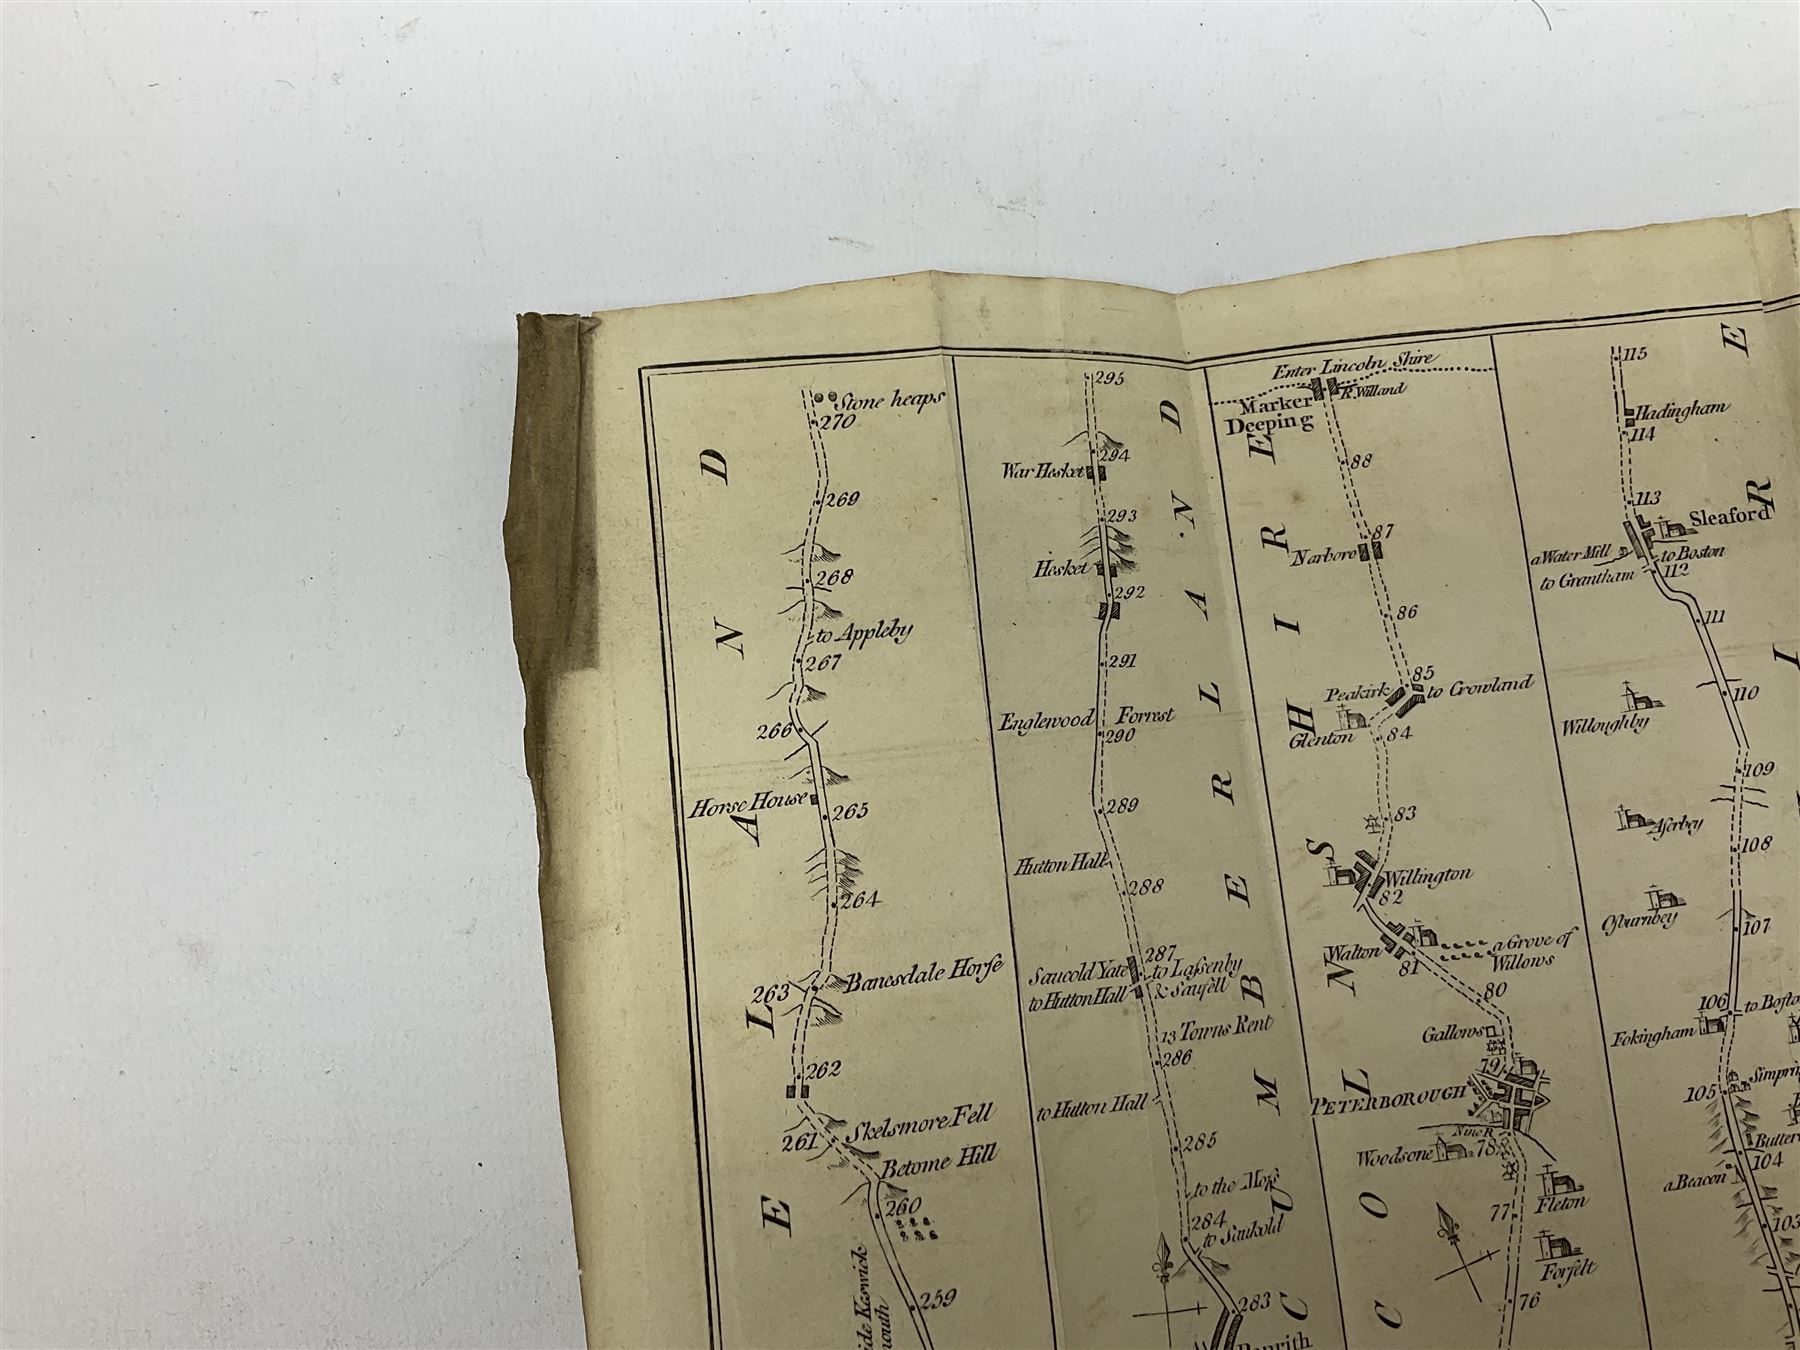 Stone heaps
270
269
268
to Appleby
267
266
Horse House
265
264
263
Banesdale Horse
262
261
Skelsmore Fell
Betome Hill
260
259
E L A N D
295
294
War Hesket
293
Hesket
292
291
Englewood Forrest
290
289
Hutton Hall
288
287
Saucold Yate
to Lassenby
& Saufell
to Hutton Hall
13 Towns Rent
286
to Hutton Hall
285
to the Moss
284
to Saukold
283
Penrith
C U M B E R L A N D
Enter Lincoln Shire
R. Willand
Marker
Deeping
88
87
Narboro
86
85
Peakirk
to Crowland
Glenton
84
83
Willington
82
Walton
81
a Grove of
Willows
80
Gallows
79
PETERBOROUGH
Nine R.
Woodsone
78
Fleton
77
Forselt
76
S H I R E
115
Hadingham
114
113
Sleaford
a Water Mill
to Boston
to Grantham
112
111
110
Willoughby
109
Aserbey
108
Osburnbey
107
106
to Bosto
Fokingham
105
Simprin
Butter
104
a Beacon
103
C O L N
I R E